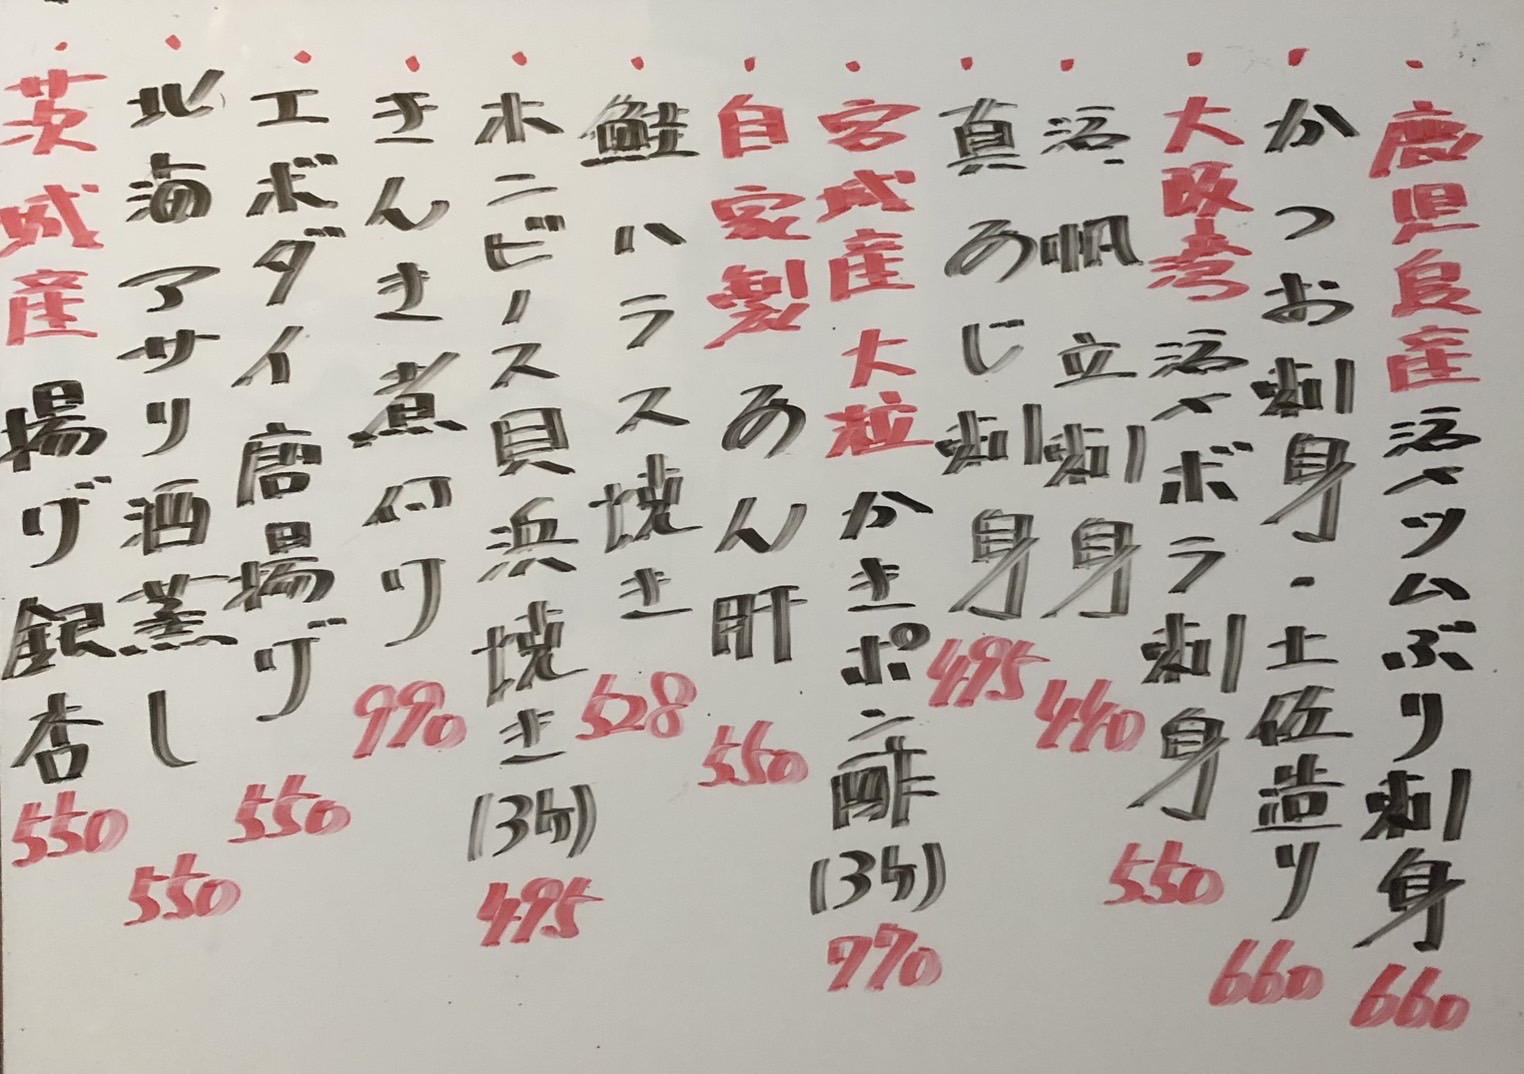 ・鹿児島産 活〆ツムぶり刺身 660
・かつお刺身・土佐造り 660
・大阪湾 活〆ボラ刺身 550
・活帆立刺身 440
・真あじ刺身 495
・宮城産 大粒 かきポン酢(3ケ) 970
・自家製 あん肝 550
・鮭ハラス焼き 528
・ホンビノス貝浜焼き(3ケ) 495
・きんき煮付け 990
・エボダイ唐揚げ 550
・北海アサリ酒蒸し 550
・茨城産 揚げ銀杏 550